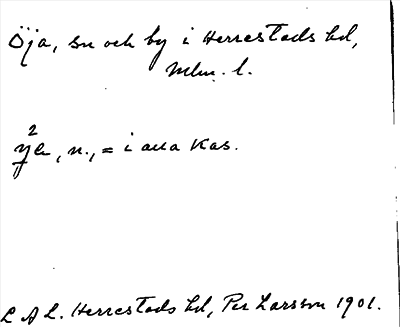 Öja, sn och by i Herrestads hd,
Mlm. l.
2
n., = i alla Kas.
L A L. Herrestads hd, Per Larsson 1901.